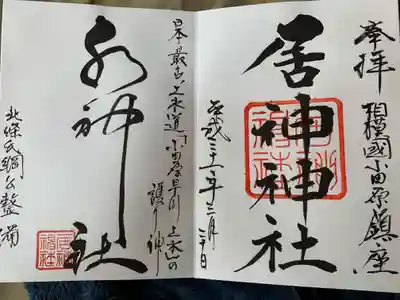 奉拝 相模國小田原鎮座
居神神社
平成三十一年三月二十日
日本最古の上水道「小田原早川上水」の
護り神
水神社
北條氏綱公整備